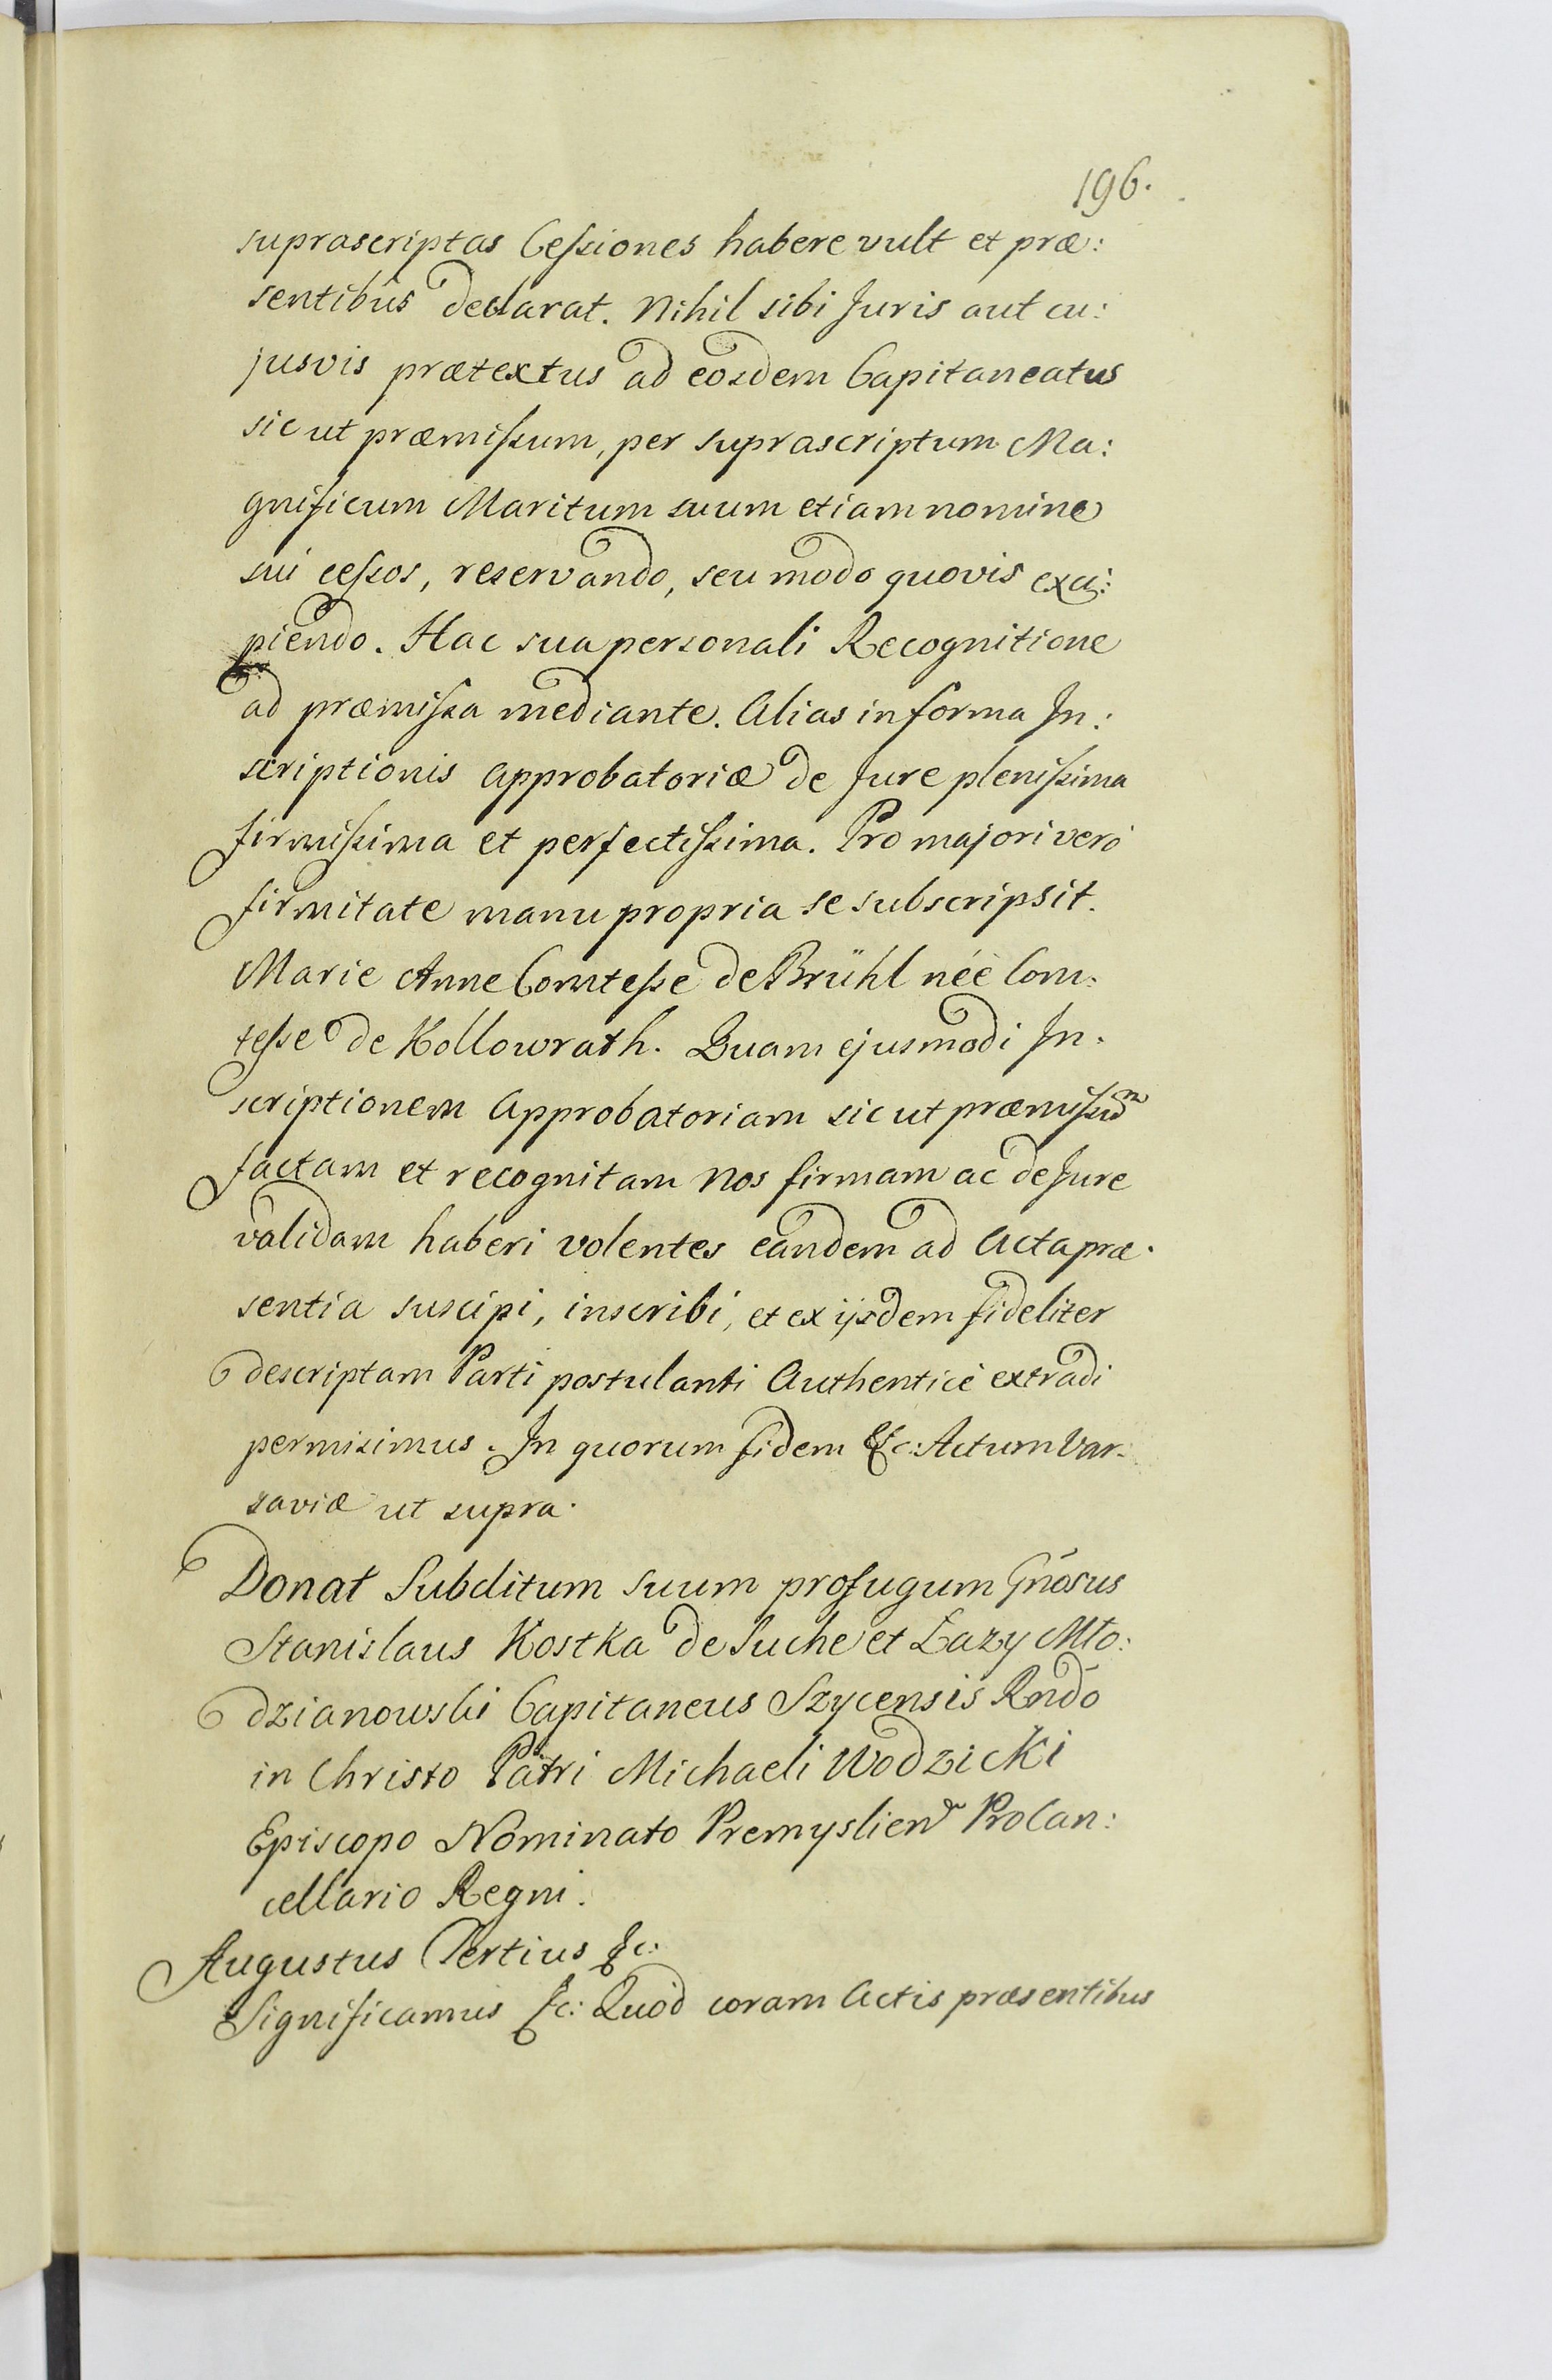 196.
suprascriptas Cessiones habere vult et præ:
sentibûs declarat. Nihil sibi Juris aut cu:
jusvis prætextus ad eosdem Capitaneatus
sicut præmissum, per suprascriptum Ma:
gnificum Maritum suum etiam nomine
sui cessos, reservando, seu modo quovis exci:
piendo. Hac sua personali Recognitione
ad præmissa mediante. Alias in forma In:
scriptionis Approbatoriæ de Jure plenissima
firmissima et perfectissima. Pro majori verò
firmitate manu propria se subscripsit.
Marie Anne Comtesse de Brühl néè Com:
tesse de Kollowrath. Quam ejusmodi In:
scriptionem Approbatoriam sicut præmissũm
factam et recognitam Nos firmam ac de Jure
validam haberi volentes eandem ad Acta præ:
sentia suscipi, inscribi, et ex ijsdem fideliter
descriptam Parti postulanti Authenticè extradi
permisimus. In quorum fidem &c: Actum Var:
saviæ ut supra.
Donat Subditum suum profugum Gñosus
Stanislaus Kostka de Suche et Łazy Mło:
dzianowski Capitaneus Szycensis Rndō
in Christo Patri Michaeli Wodzicki
Episcopo Nominato Premyslien̄ ProCan:
cellario Regni.
Augustus Tertius &c:
Significamus &c: Quòd coram Actis præsentibus